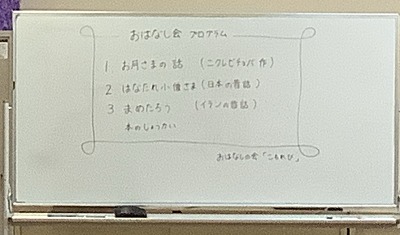 おはなし会 プログラム
1 お月さまの話 (ニクレビチョバ 作)
2 はなたれ小僧さま (日本の昔話)
3 まめたろう (イランの昔話)
本のしょうかい
おはなしの会「こもれび」